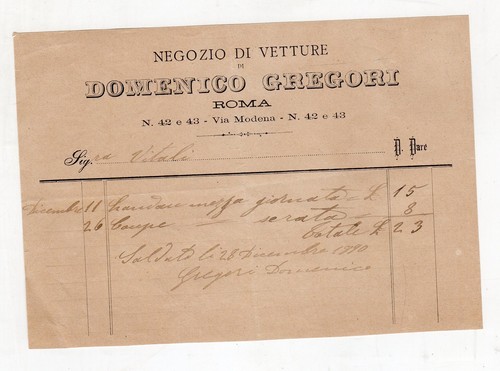 NEGOZIO DI VETTURE
DI
DOMENICO GREGORI
ROMA
N. 42 e 43 - Via Modena - N. 42 e 43
Sig.ra Vitali D. Dare
Dicembre 11 Landau mezza giornata = £ 15
26 Coupe — serata — 8
Totale £ 23
Saldato li 28 Dicembre
Gregori Domenico